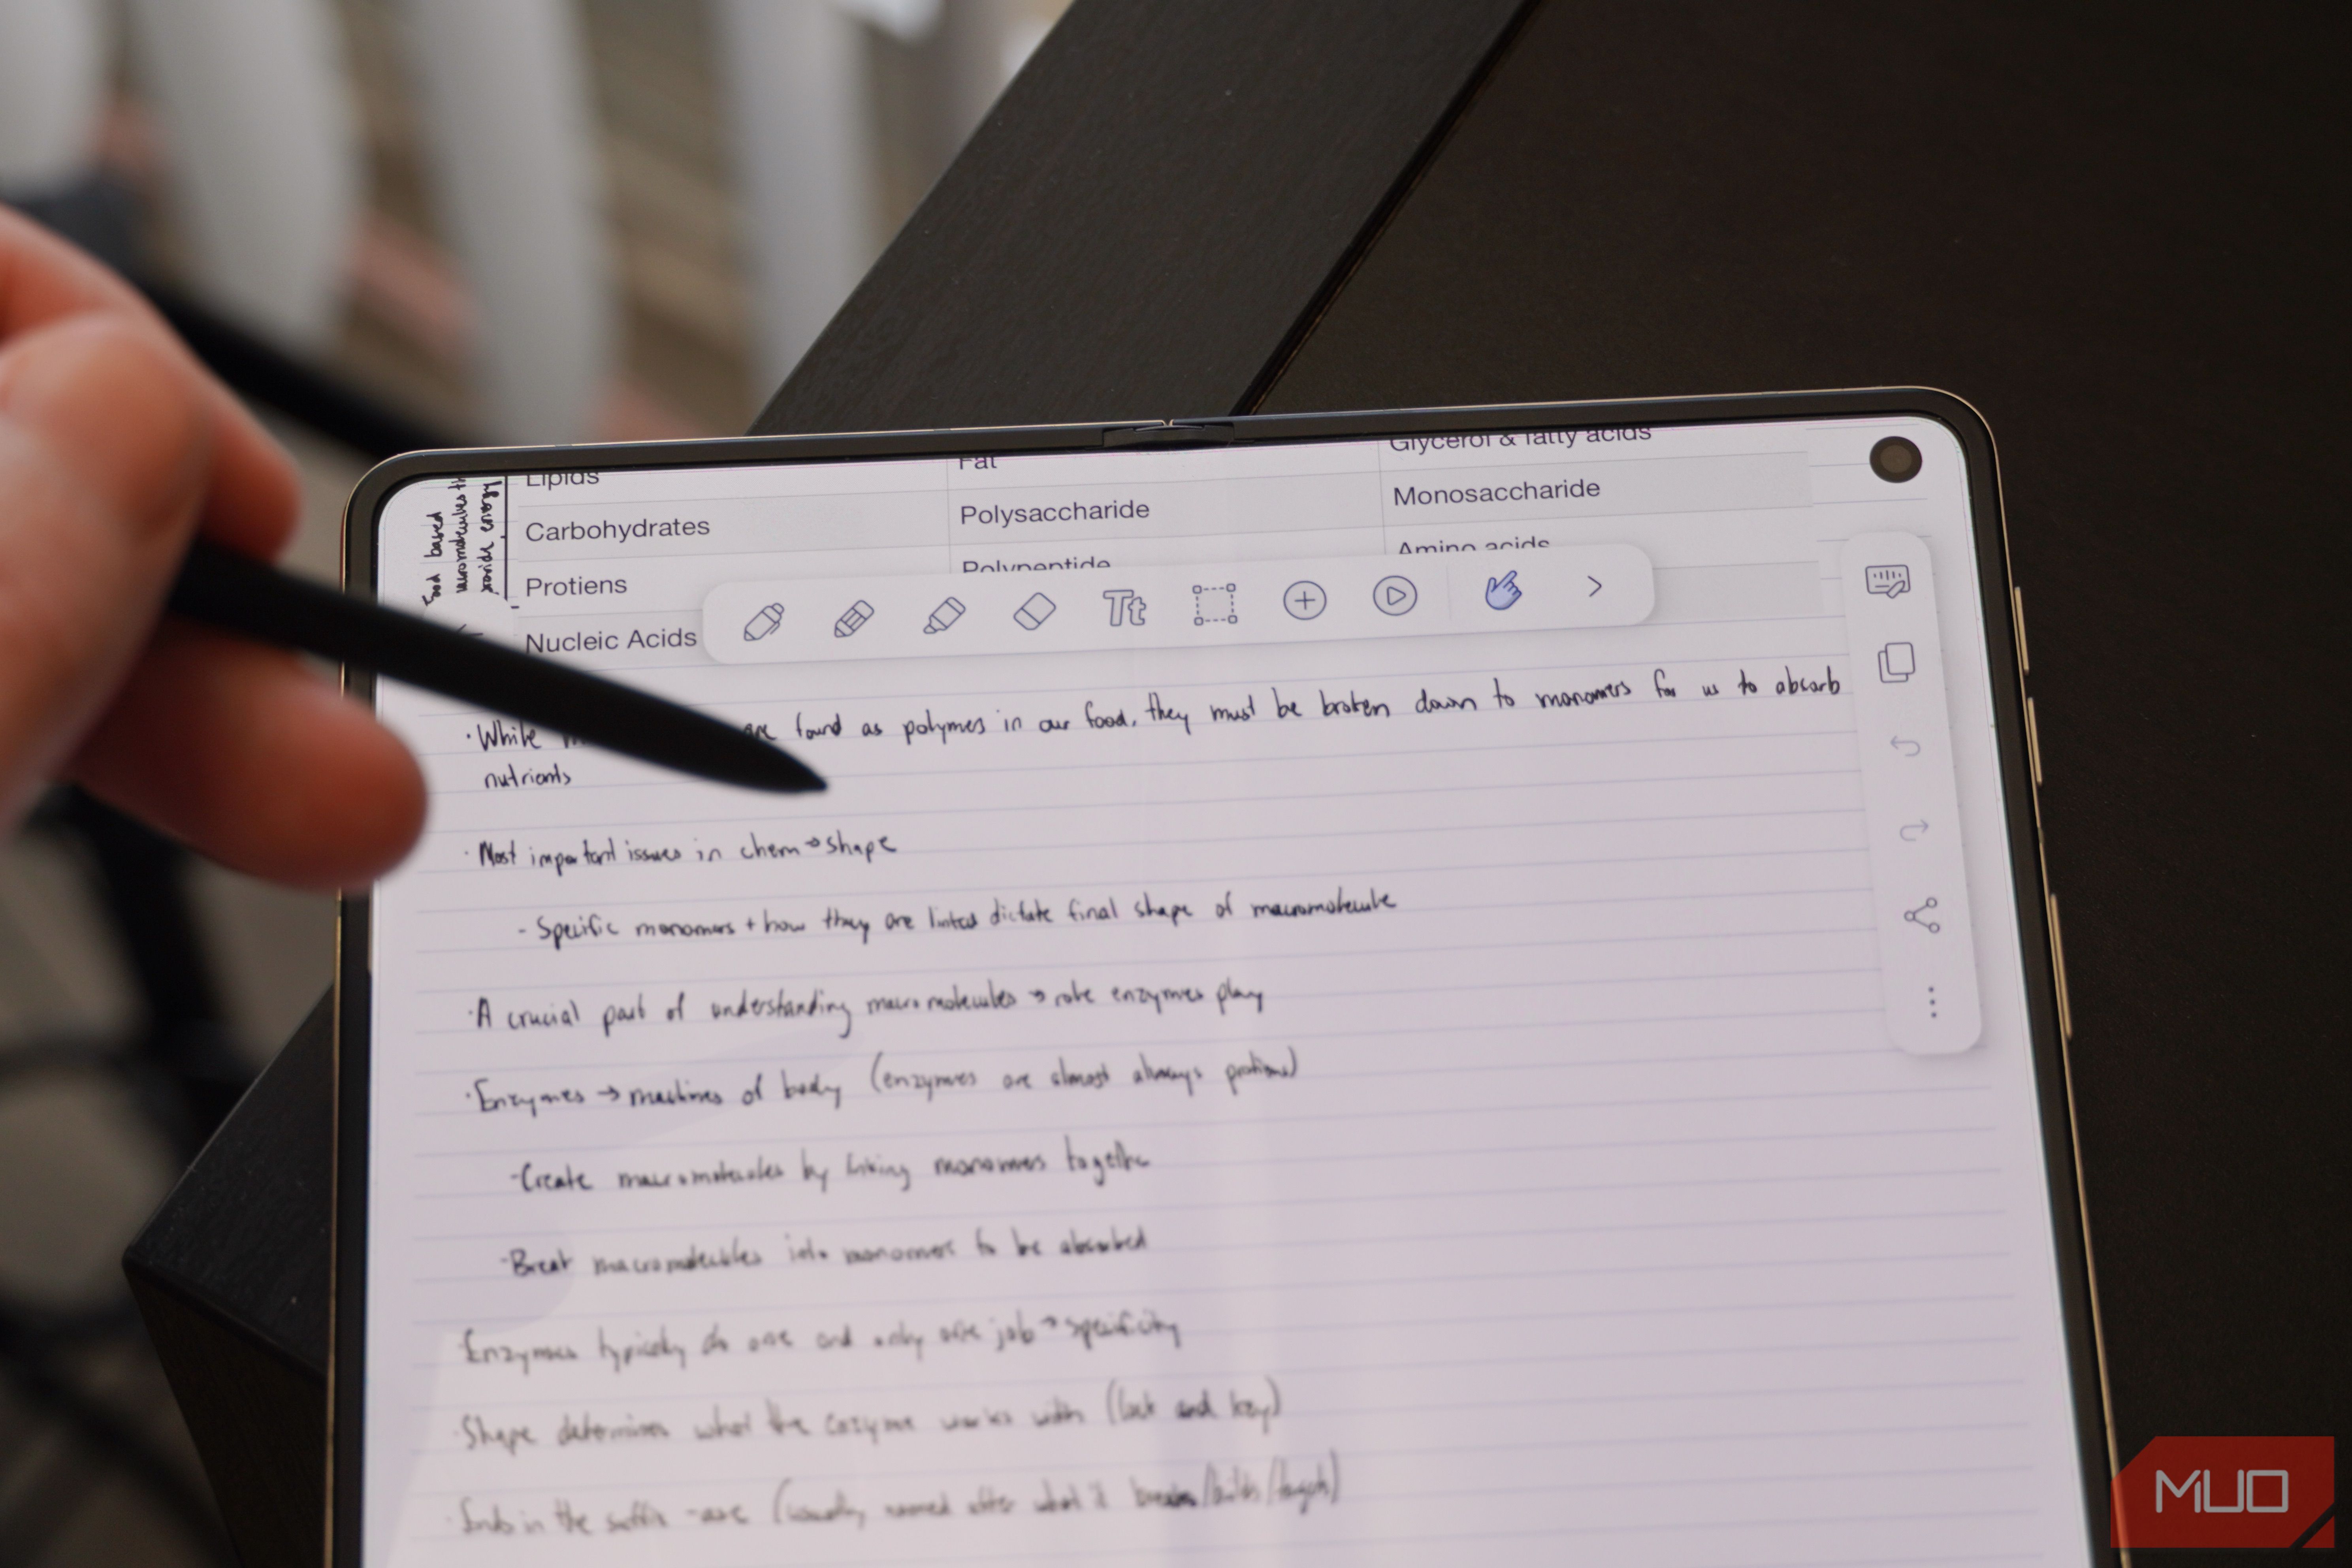 Lipids Fat Glycerol & fatty acids
Carbohydrates Polysaccharide Monosaccharide
Protiens Polypeptide Amino acids
Nucleic Acids
Food based
macromolecules th
Tt
· While are found as polymes in our food, they must be broken down to monomers for us to absorb
nutrients
· Most important issues in chem → shape
- Specific monomers + how they are linked dictate final shape of macromolecule
· A crucial part of understanding macromolecules → role enzymes play
· Enzymes → machines of body (enzymes are almost always protiens)
- Create macromolecules by linking monomers together
- Break macromolecules into monomers to be absorbed
Enzymes typically do one and only one job → specificity
· Shape determines what the enzyme works with (lock and key)
· Ends in the suffix -ase (usually named after what it breaks/builds/targets)
MUO